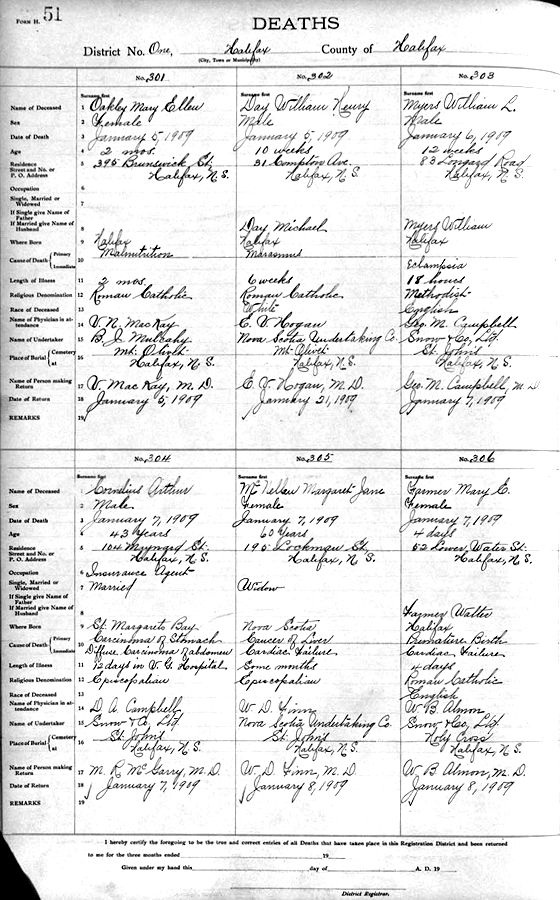 FORM H. 51
DEATHS
District No. One, Halifax County of Halifax
(City, Town or Municipality)
No. 301 No. 302 No. 303
Surname first Surname first Surname first
Name of Deceased 1 Oakley Mary Ellen Day William Henry Myers William L.
Sex 2 Female Male Male
Date of Death 3 January 5, 1909 January 5, 1909 January 6, 1909
Age 4 2 mos. 10 weeks 12 weeks
Residence Street and No. or P. O. Address 5 395 Brunswick St. Halifax, N. S. 31 Compton Ave. Halifax, N. S. 83 Longard Road Halifax, N. S.
Occupation 6
Single, Married or Widowed 7
If Single give Name of Father
If Married give Name of Husband 8 Day Michael Myers William
Where Born 9 Halifax Halifax Halifax
Cause of Death Primary Immediate 10 Malnutrition Marasmus Eclampsia
Length of Illness 11 2 mos. 6 weeks 18 hours
Religious Denomination 12 Roman Catholic Roman Catholic Methodist
Race of Deceased 13 White English
Name of Physician in attendance 14 V. N. MacKay E. V. Hogan Geo. M. Campbell
Name of Undertaker 15 B. J. Mulcahy Nova Scotia Undertaking Co. Snow & Co, Ltd.
Place of Burial Cemetery at 16 Mt. Olivet Halifax, N. S. Mt. Olivet Halifax, N. S. St. John's Halifax, N. S.
Name of Person making Return 17 V. MacKay, M. D. E. V. Hogan, M. D. Geo. M. Campbell, M. D.
Date of Return 18 January 5, 1909 January 21, 1909 January 7, 1909
REMARKS 19
No. 304 No. 305 No. 306
Surname first Surname first Surname first
Name of Deceased 1 Cornelius Arthur McKellar Margaret Jane Farmer Mary E.
Sex 2 Male Female Female
Date of Death 3 January 7, 1909 January 7, 1909 January 7, 1909
Age 4 43 years 60 years 4 days
Residence Street and No. or P. O. Address 5 104 Maynard St. Halifax, N. S. 195 Lockman St. Halifax, N. S. 52 Lower Water St. Halifax, N. S.
Occupation 6 Insurance Agent
Single, Married or Widowed 7 Married Widow
If Single give Name of Father
If Married give Name of Husband 8 Farmer Walter
Where Born 9 St. Margarets Bay Nova Scotia Halifax
Cause of Death Primary Immediate 10 Carcinoma of Stomach Cancer of Liver Premature Birth
Diffuse Carcinoma of abdomen Cardiac Failure Cardiac Failure
Length of Illness 11 12 days in V. G. Hospital Some months 4 days
Religious Denomination 12 Episcopalian Episcopalian Roman Catholic
Race of Deceased 13 English
Name of Physician in attendance 14 D. A. Campbell W. D. Finn W. B. Almon
Name of Undertaker 15 Snow & Co, Ltd. Nova Scotia Undertaking Co. Snow & Co, Ltd.
Place of Burial Cemetery at 16 St. John's Halifax, N. S. St. John's Halifax, N. S. Holy Cross Halifax, N. S.
Name of Person making Return 17 M. R. McGarry, M. D. W. D. Finn, M. D. W. B. Almon, M. D.
Date of Return 18 January 7, 1909 January 8, 1909 January 8, 1909
REMARKS 19
I hereby certify the foregoing to be the true and correct entries of all Deaths that have taken place in this Registration District and been returned
to me for the three months ended 19
Given under my hand this day of A. D. 19
District Registrar.